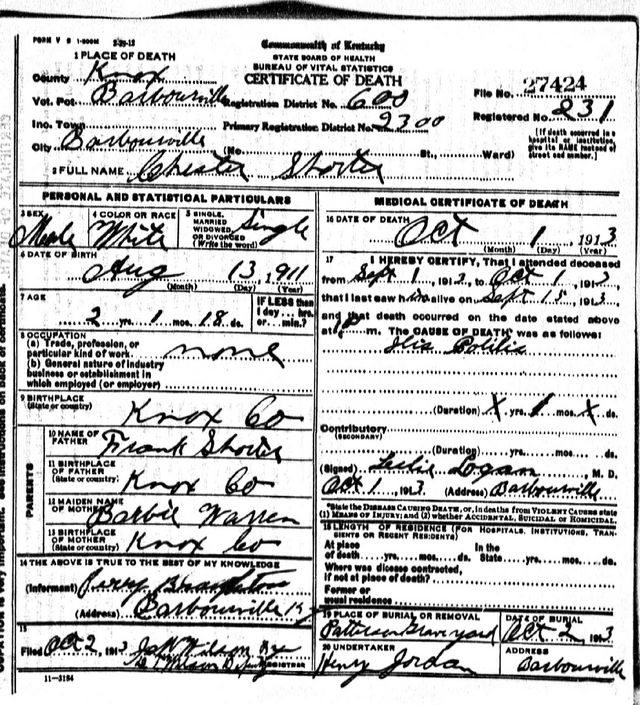 FORM V S 1-500M 2-29-12
Commonwealth of Kentucky
STATE BOARD OF HEALTH
BUREAU OF VITAL STATISTICS
CERTIFICATE OF DEATH
1 PLACE OF DEATH
County Knox
Vot. Pct. Barbourville Registration District No. 600
Inc. Town Primary Registration District No. 9300
City Barbourville (No. St., Ward)
File No. 27424
Registered No. 231
[If death occurred in a hospital or institution, give its NAME instead of street and number.]
2 FULL NAME Chester Shorter
PERSONAL AND STATISTICAL PARTICULARS
3 SEX Male
4 COLOR OR RACE White
5 SINGLE, MARRIED WIDOWED, OR DIVORCED (Write the word) Single
6 DATE OF BIRTH Aug 13, 1911
(Month) (Day) (Year)
7 AGE 2 yrs. 1 mos. 18 ds.
IF LESS than 1 day... hrs. or... min.?
8 OCCUPATION
(a) Trade, profession, or particular kind of work none
(b) General nature of industry business or establishment in which employed (or employer)
9 BIRTHPLACE (State or country) Knox Co
PARENTS
10 NAME OF FATHER Frank Shorter
11 BIRTHPLACE OF FATHER (State or country) Knox Co
12 MAIDEN NAME OF MOTHER Barbie Warren
13 BIRTHPLACE OF MOTHER (State or country) Knox Co
14 THE ABOVE IS TRUE TO THE BEST OF MY KNOWLEDGE
(Informant) Perry
(Address) Barbourville Ky
15
Filed Oct 2, 1913 Wilson
REGISTRAR
11-3184
MEDICAL CERTIFICATE OF DEATH
16 DATE OF DEATH Oct 1, 1913
(Month) (Day) (Year)
17 I HEREBY CERTIFY, That I attended deceased
from Sept 1, 1913, to Oct 1, 1913,
that I last saw him alive on Sept 15, 1913,
and that death occurred on the date stated above
at m. The CAUSE OF DEATH* was as follows:
Ilio Colitis
(Duration) X yrs. 1 mos. X ds.
Contributory (SECONDARY)
(Duration) yrs. mos. ds.
(Signed) Leslie Logan, M. D.
Oct 1, 1913 (Address) Barbourville
*State the DISEASE CAUSING DEATH, or, in deaths from VIOLENT CAUSES state (1) MEANS OF INJURY; and (2) whether ACCIDENTAL, SUICIDAL or HOMICIDAL.
18 LENGTH OF RESIDENCE (FOR HOSPITALS, INSTITUTIONS, TRANSIENTS OR RECENT RESIDENTS)
At place of death... yrs. mos. ds. In the State... yrs. mos. ds.
Where was disease contracted, if not at place of death?
Former or usual residence
19 PLACE OF BURIAL OR REMOVAL Patterson Graveyard
DATE OF BURIAL Oct 2 1913
20 UNDERTAKER Henry Jordan
ADDRESS Barbourville